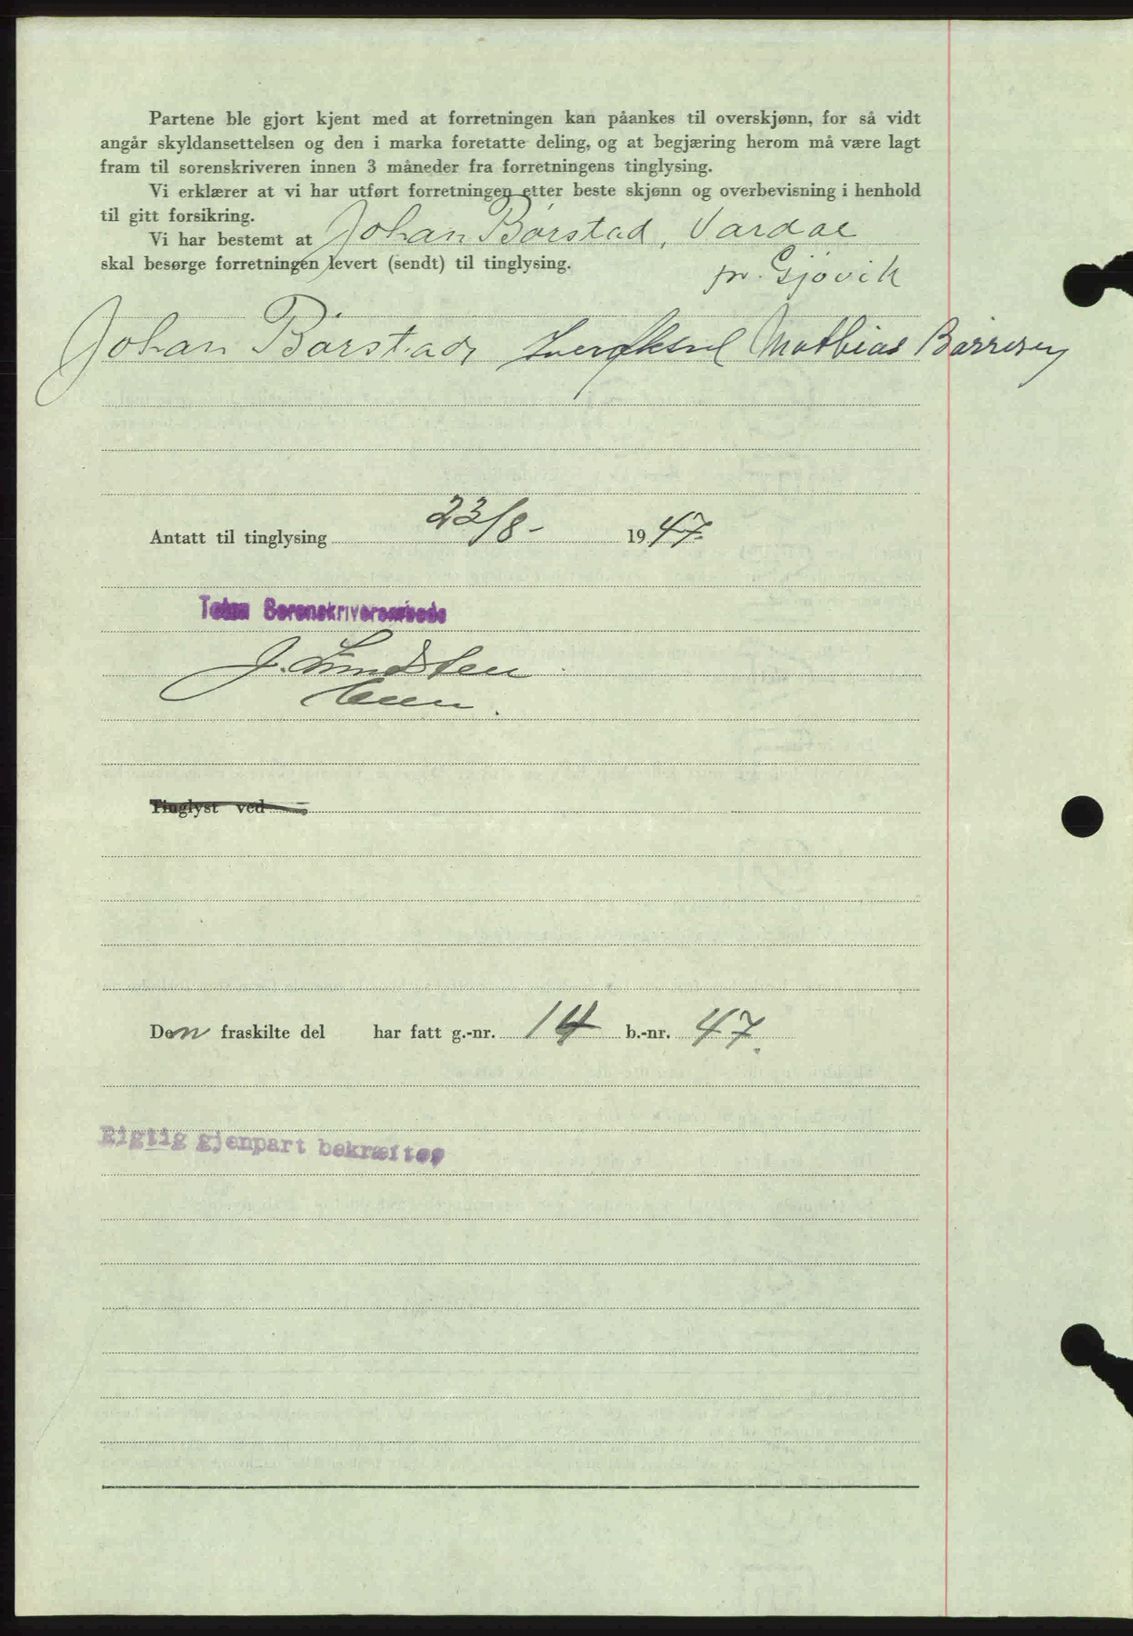 Partene ble gjort kjent med at forretningen kan påankes til overskjønn, for så vidt
angår skyldansettelsen og den i marka foretatte deling, og at begjæring herom må være lagt
fram til sorenskriveren innen 3 måneder fra forretningens tinglysing.
Vi erklærer at vi har utført forretningen etter beste skjønn og overbevisning i henhold
til gitt forsikring.
Vi har bestemt at Johan Børstad, Vardal
skal besørge forretningen levert (sendt) til tinglysing. pr. Gjøvik
Johan Børstad Mathias
Antatt til tinglysing 23/8- 1947.
Toten Sorenskriverembede
J. Lundsten
Tinglyst ved
Den fraskilte del har fått g.-nr. 14 b.-nr. 47.
Rigtig gjenpart bekræftes